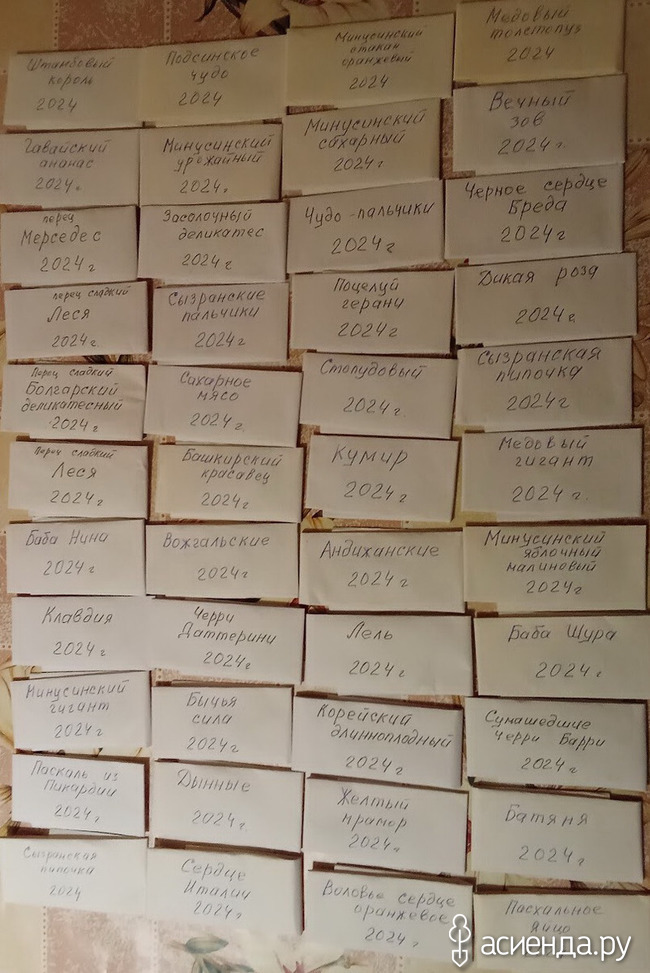 Штамбовый
король
2024
Подсинское
чудо
2024
Минусинский
стакан
оранжевый
2024
Медовый
толстопуз
2024
Гавайский
ананас
2024г.
Минусинский
урожайный
2024г
Минусинский
сахарный
2024г
Вечный
зов
2024г
перец
Мерседес
2024г
Засолочный
деликатес
2024г
Чудо-пальчики
2024г
Черное сердце
Бреда
2024г
перец сладкий
Леся
2024г.
Сызранские
пальчики
2024г
Поцелуй
герани
2024г
Дикая роза
2024г
Перец сладкий
Болгарский
деликатесный
2024г
Сахарное
мясо
2024г
Стопудовый
2024г
Сызранская
пипочка
2024г
Перец сладкий
Леся
2024г
Башкирский
красавец
2024г
Кумир
2024г
Медовый
гигант
2024г.
Баба Нина
2024г
Вожгальские
2024г
Андижанские
2024г
Минусинский
яблочный
малиновый
2024г
Клавдия
2024г
Черри
Даттерини
2024г
Лель
2024г
Баба Шура
2024г
Минусинский
гигант
2024г
Бычья
сила
2024г
Корейский
длинноплодный
2024г
Сумашедшие
черри Барри
2024г
Паскаль из
Пикардии
2024г
Дынные
2024г
Желтый
мрамор
2024г
Батяня
2024г
Сызранская
пипочка
2024
Сердце
Италии
2024г
Воловье сердце
оранжевое
2024г
Пасхальное
яйцо
асиенда.ру